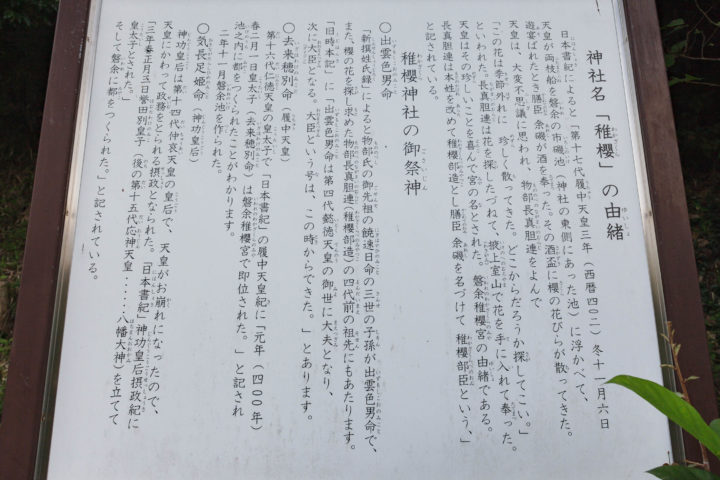 神社名「稚櫻」の由緒
日本書紀によると「第十七代履中天皇三年（西暦四〇二）冬十一月六日
天皇が両枝船を磐余の市磯池（神社の東側にあった池）に浮かべて、
遊宴ばれたとき膳臣 余磯が酒を奉った。その酒盃に櫻の花びらが散ってきた。
天皇は、大変不思議に思われ、物部長真胆連をよんで
「この花は季節外れに 珍しく散ってきた。どこからだろうか探してこい。」
といわれた。長真胆連は花を探したづねて、掖上室山で花を手に入れて奉った。
天皇はその珍しいことを喜んで宮の名とされた。磐余稚櫻宮の由緒である。
長真胆連は本姓を改めて稚櫻部造とし膳臣 余磯を名づけて 稚櫻部臣という、」
と記されている。
稚櫻神社の御祭神
〇出雲色男命
「新撰姓氏録」によると物部氏の御先祖の饒速日命の三世の子孫が出雲色男命で、
また、櫻の花を探し求めた物部長真胆連（稚櫻部造）の四代前の祖先にもあたります。
「旧時本記」に「出雲色男命は第四代懿徳天皇の御世に大夫となり、
次に大臣となる。大臣という号は、この時からできた。」とあります。
〇去来穂別命（履中天皇）
第十六代仁徳天皇の皇太子で「日本書紀」の履中天皇紀に「元年（四〇〇年）
春二月一日皇太子（去来穂別命）は磐余稚櫻宮で即位された。」と記され
池之内に都をつくられたことがわかります。
二年十一月磐余池を作られた。
〇気長足姫命（神功皇后）
神功皇后は第十四代仲哀天皇の皇后で、天皇がお崩れになったので、
天皇にかわって政務をとられる摂政となられた。「日本書紀」神功皇后摂政紀に
「三年春正月三日誉田別皇子（後の第十五代応神天皇・・・・・八幡大神）を立てて
皇太子とされた。」
そして磐余に都をつくられた。」と記されている。